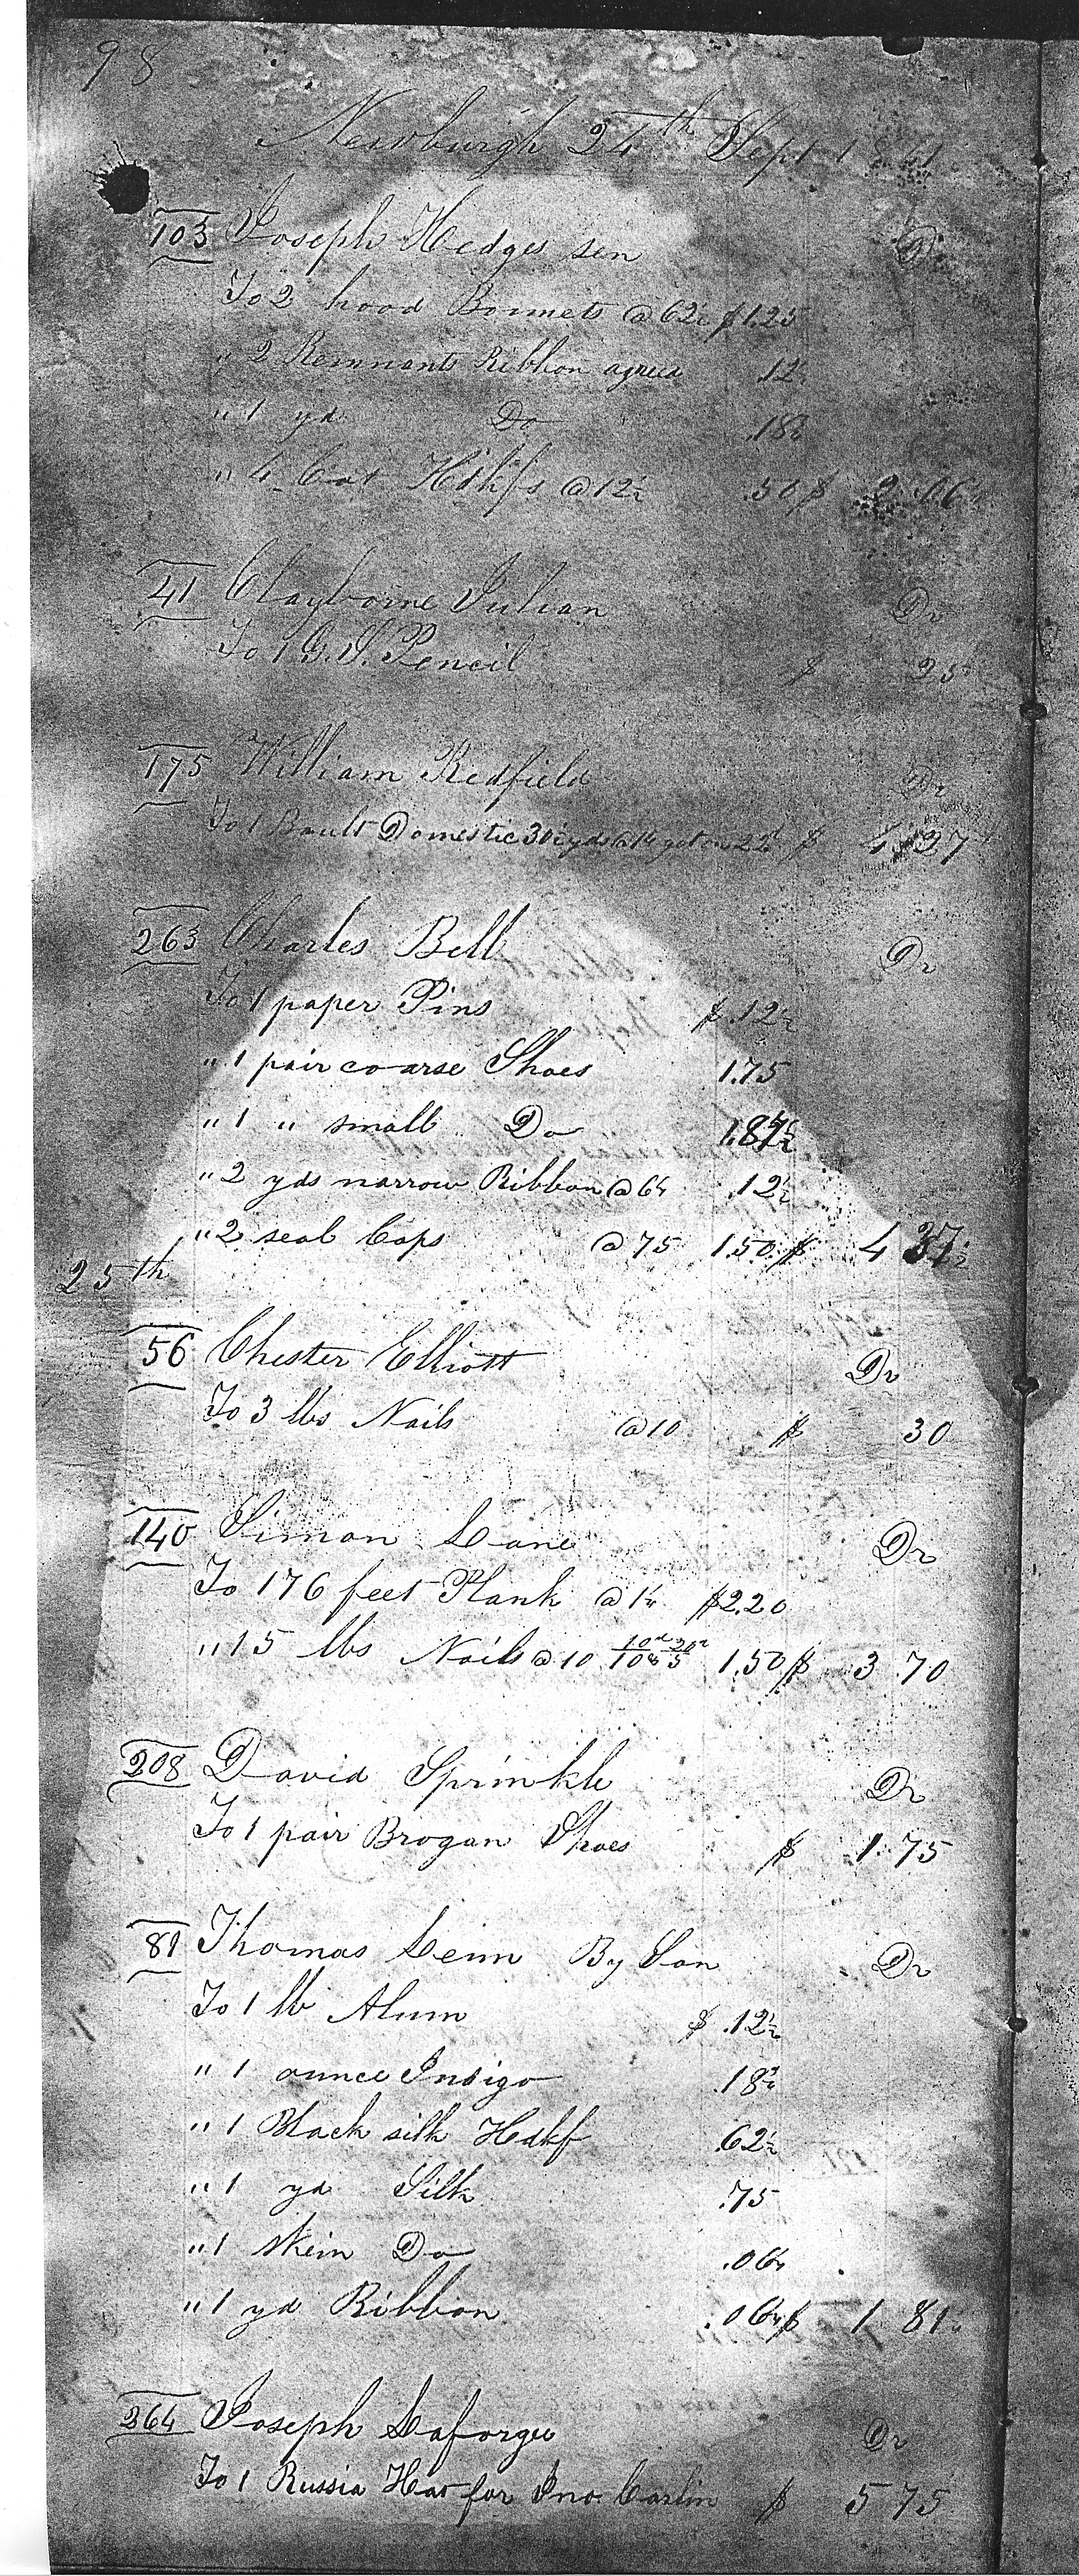 98
Newburgh 24th Sept 1841
103 Joseph Hedges sen Dr
To 2 hood Bonnets @ 62½ $1.25
" 2 Remnants Ribbon agreed .12½
" 1 yd Do .18¾
" 4 Cot Hdkfs @ 12½ .50 $ 2.06¼
41 Clayborne Julian Dr
To 1 G.S. Pencil $ 25
175 William Redfield Dr
To 1 Boult Domestic 30½ yds @ 14 got on 22d $ 4.27
263 Charles Bell Dr
To 1 paper Pins $ .12½
" 1 pair coarse Shoes 1.75
" 1 " small Do
" 2 yds narrow Ribbon @ 6¼ .12½
" 2 seal Caps @ 75 1.50 $ 4 37½
25th
56 Chester Elliott Dr
To 3 lbs Nails @ 10 $ 30
140 Simon Lane Dr
To 176 feet Plank @ 1¼ $2.20
" 15 lbs Nails @ 10 1.50 $ 3 70
208 David Sprinkle Dr
To 1 pair Brogan Shoes $ 1.75
81 Thomas By Son Dr
To 1 lb Alum $ .12½
" 1 ounce Indigo .18¾
" 1 Black silk Hdkf .62½
" 1 yd Silk .75
" 1 skein Do .06¼
" 1 yd Ribbon .06¼ $ 1 81¼
264 Joseph Laforge Dr
To 1 Russia Hat for Jno. Carlin $ 5 75